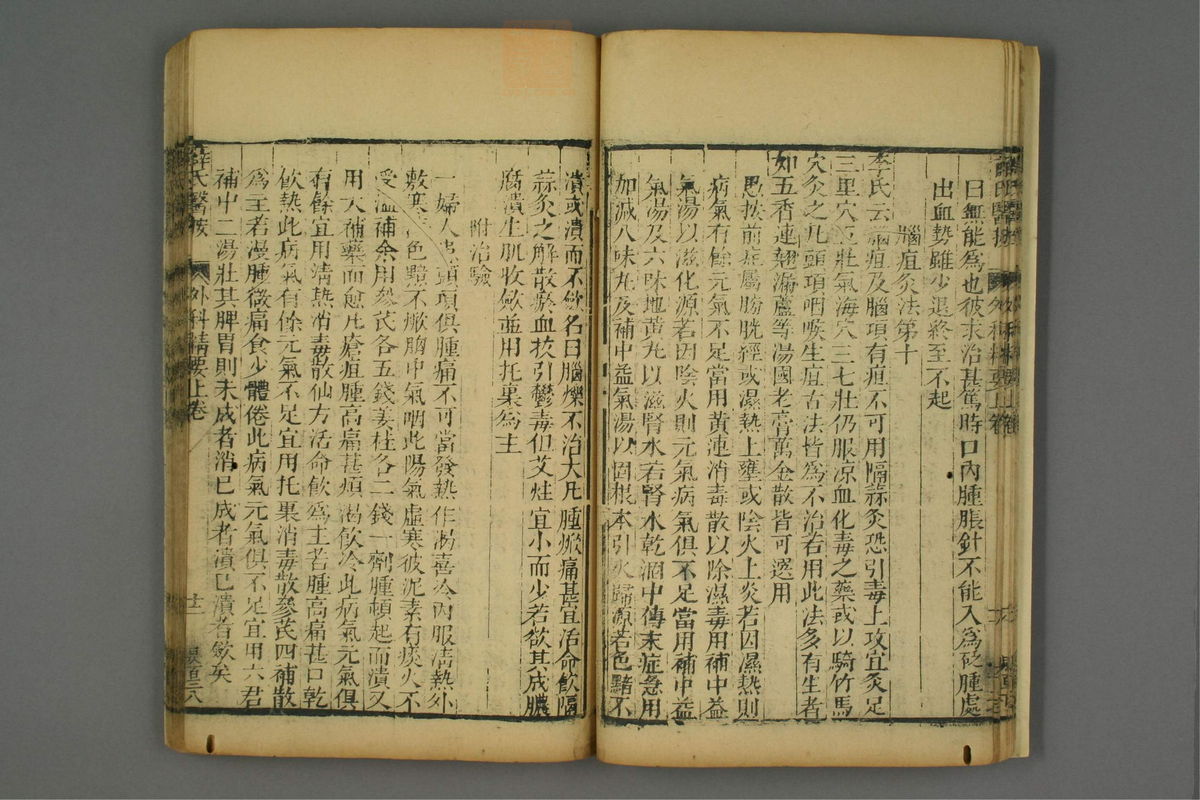 曰無能爲也彼求治甚篤時口內腫脹針不能入爲砭腫處
出血勢雖少退終至不起
腦疽灸法第十
李氏云腦疽及腦項有疽不可用隔蒜灸恐引毒上攻宜灸足
三里穴五壯氣海穴三七壯仍服凉血化毒之藥或以騎竹馬
穴灸之凡頭項咽喉生疽古法皆爲不治若用此法多有生者
如五香連翹漏蘆等湯國老膏萬金散皆可選用
愚按前症屬膀胱經或濕熱上壅或陰火上炎若因濕熱則
病氣有餘元氣不足當用黃連消毒散以除濕毒用補中益
氣湯以滋化源若因陰火則元氣病氣俱不足當用補中益
氣湯及六味地黃丸以滋腎水若腎水乾涸中傳末症急用
加減八味丸及補中益氣湯以固根本引火歸源若色黯不
潰或潰而不斂名曰腦爍不治大凡腫焮痛甚宜活命飲隔
蒜灸之解散瘀血拔引鬱毒但艾炷宜小而少若欲其成膿
腐潰生肌收斂並用托裏爲主
附治驗
一婦人患頭項俱腫痛不可當發熱作渴喜冷內服清熱外
敷寒色黯不焮胸中氣咽此陽氣虛寒彼泥素有痰火不
受溫補余用參芪各五錢姜桂各二錢一劑腫頓起而潰又
用大補藥而愈凡瘡疽腫高痛甚煩渴飲冷此病氣元氣俱
有餘宜用清熱消毒散仙方活命飲爲主若腫高痛甚口乾
飲熱此病氣有餘元氣不足宜用托裏消毒散參芪四補散
爲主若漫腫微痛食少體倦此病氣元氣俱不足宜用六君
補中二湯壯其脾胃則未成者消已成者潰已潰者斂矣
薛氏醫按
外科精要上卷
十二